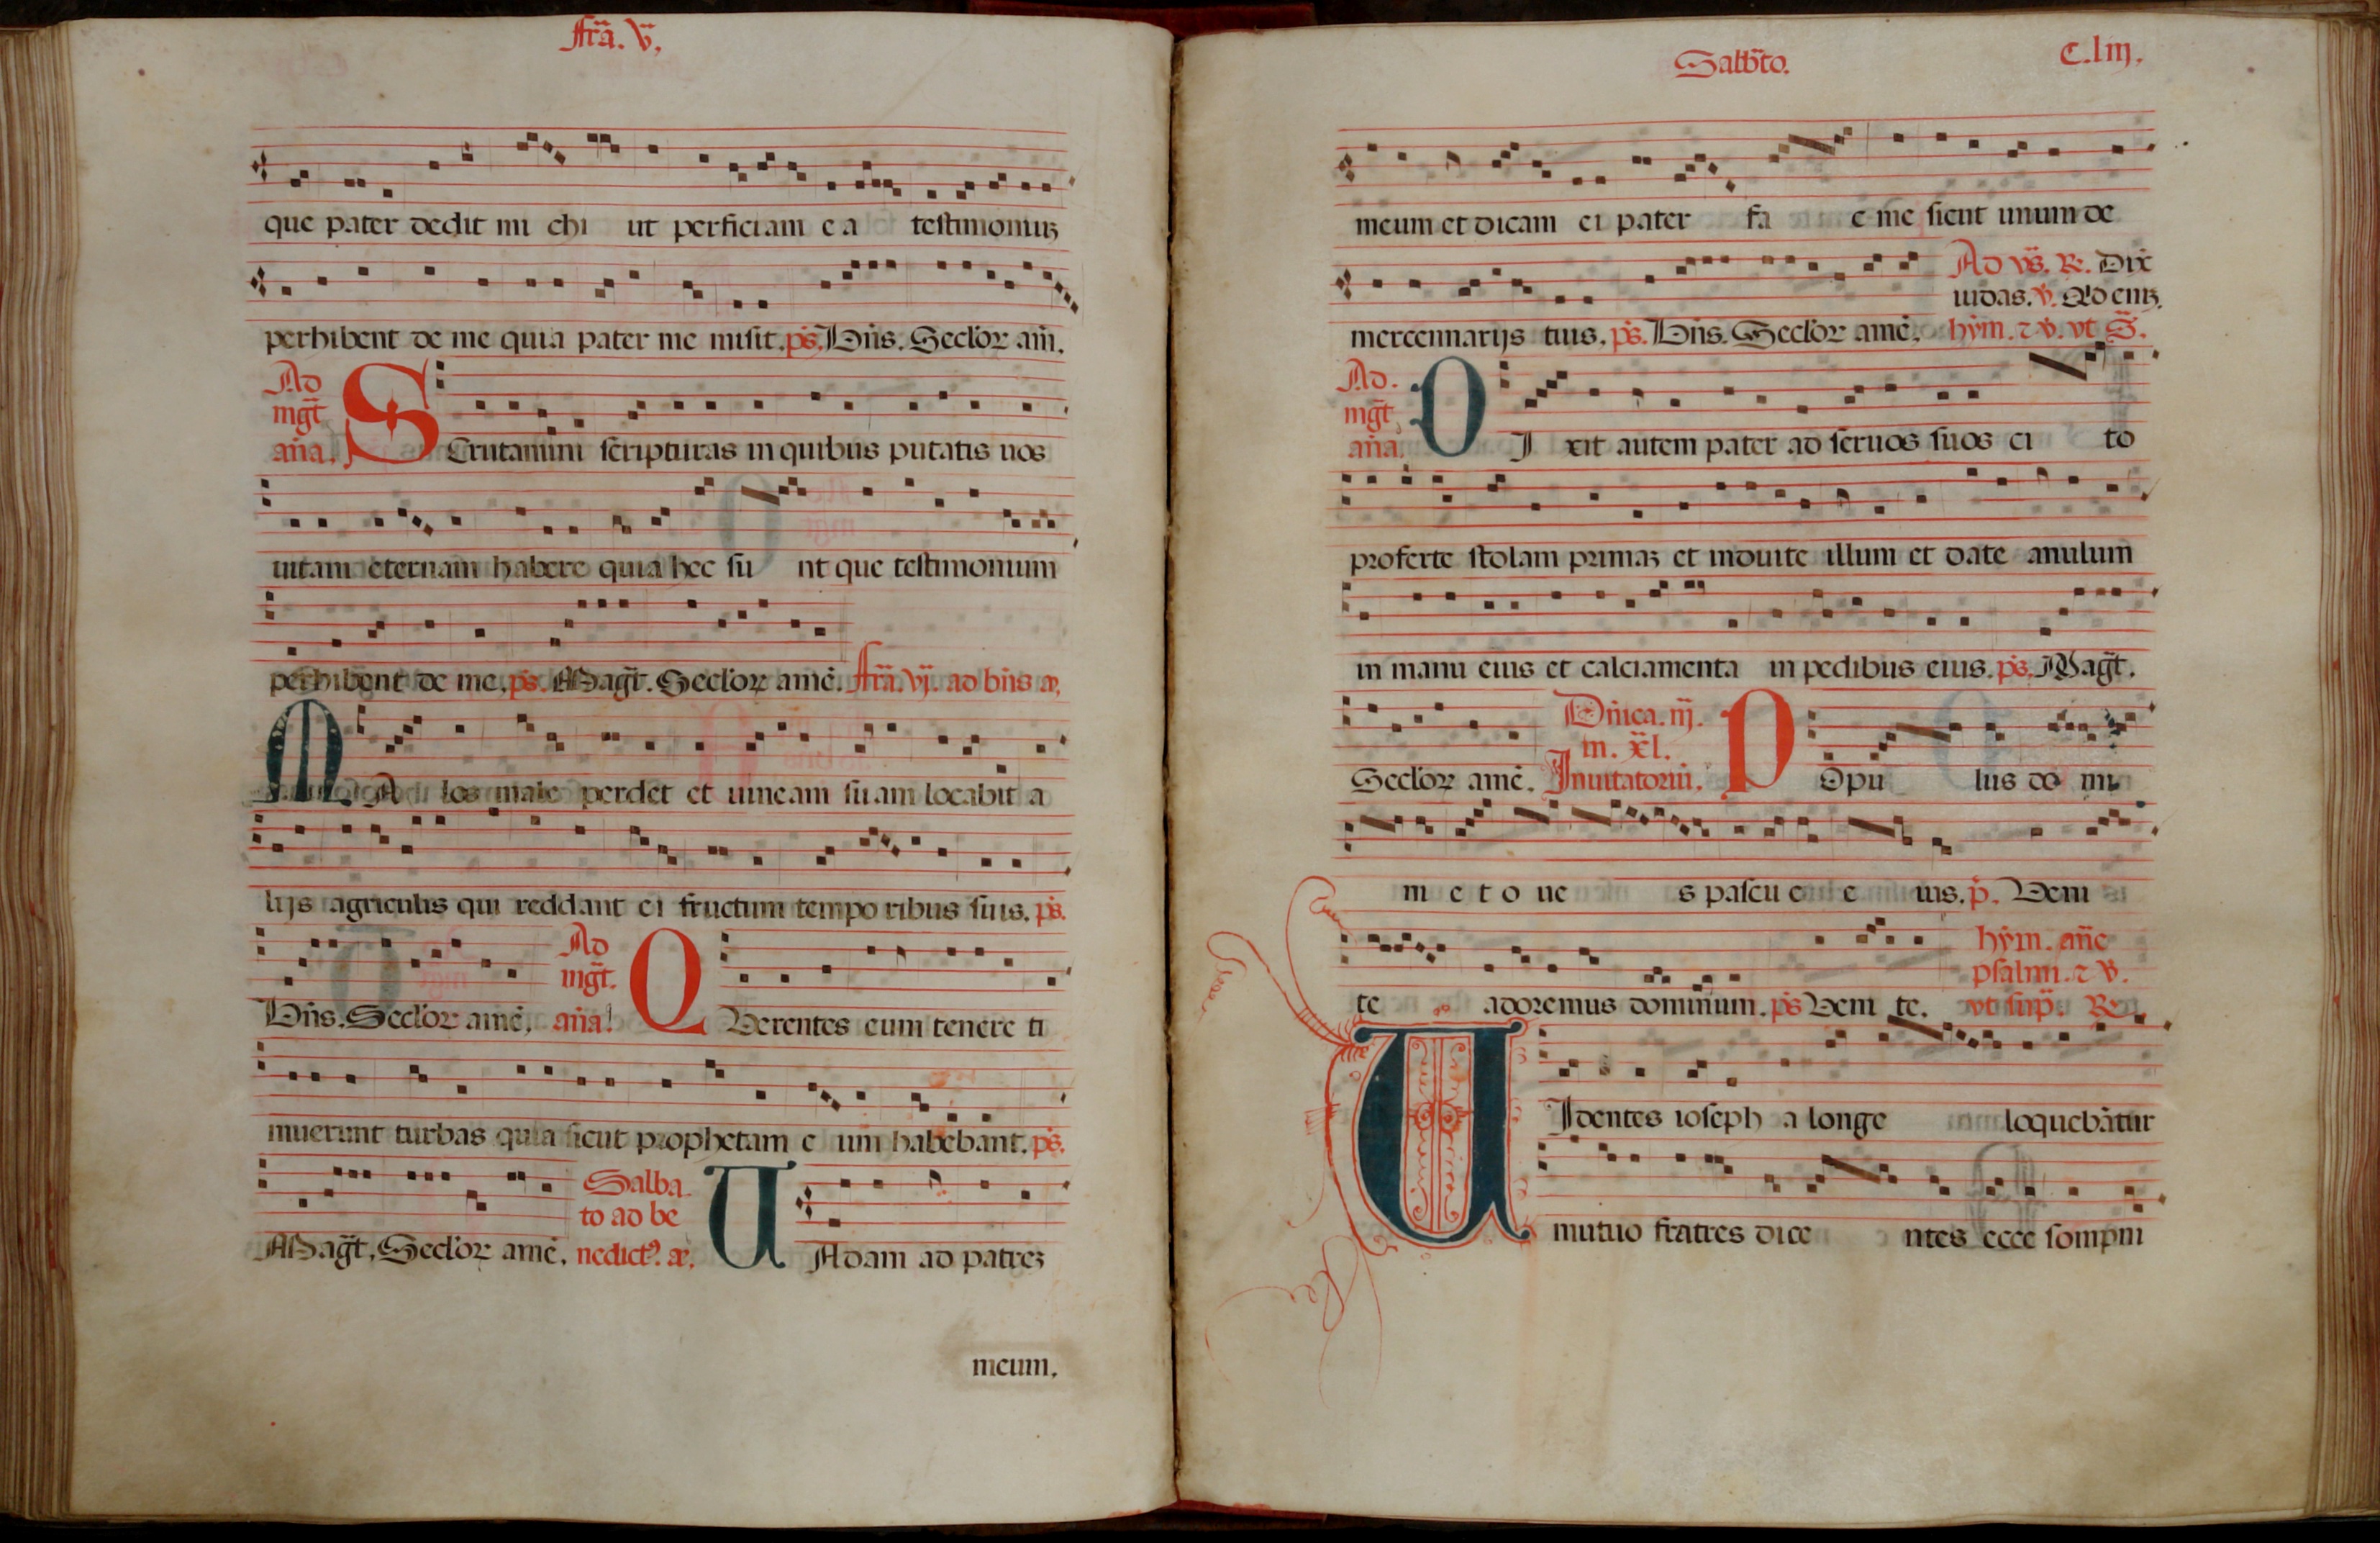 fra. v.
que pater dedit mi chi ut perficiam e a testimoniuʒ
perhibent de me quia pater me misit. ps. Dns. Seclor am.
Ad
mgt
ana.
SCrutamini scripturas in quibus putatis uos
uitam eternam habere quia hec su nt que testimonium
perhibent de me. ps. Magt. Seclor ame. fra. vj. ad bns a.
MA los male perdet et uineam suam locabit a
lijs agricolis qui reddant ei fructum tempo ribus suis. ps.
Dns. Seclor ame.
Ad
mgt.
ana.
QVerentes eum tenere ti
muerunt turbas quia sicut prophetam e um habebant. ps.
Magt. Seclor ame.
Salba
to ad be
nedict9. a.
VAdam ad patreʒ
meum.
Salbto.
C.liij.
meum et dicam ei pater fa c me sicut unum de
mercennarijs tuis. ps. Dns. Seclor ame.
Ad vs. R. Dix
iudas. v.
hym. ⁊ v. vt S.
Ad.
mgt
ana.
DI xit autem pater ad seruos suos ci to
proferte stolam primaʒ et induite illum et date anulum
in manu eius et calciamenta in pedibus eius. ps. Magt.
Seclor ame.
Dnica. iij.
in. xl.
Inuitatoriu.
POpu lus do mi
m e t o ue s pascu e e ius. p. Veni
te adoremus dominum. ps Veni te.
hym. ane
psalmi. ⁊ v.
vt sup. R.
VIdentes ioseph a longe loquebatur
mutuo fratres dice ntes ecce sompni